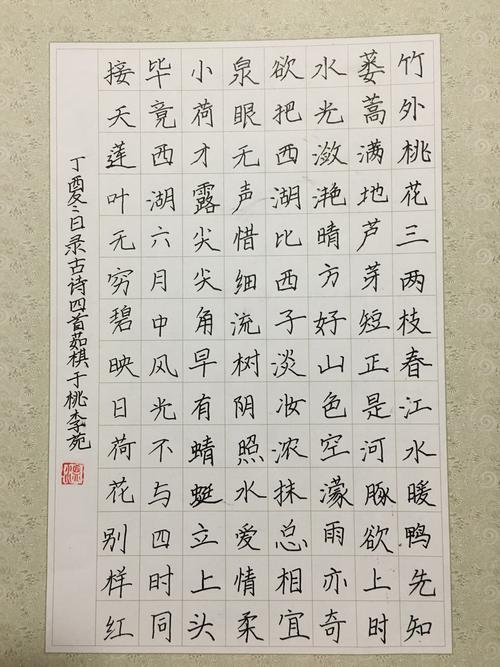 竹外桃花三两枝春江水暖鸭先知
蒌蒿满地芦芽短正是河豚欲上时
水光潋滟晴方好山色空濛雨亦奇
欲把西湖比西子淡妆浓抹总相宜
泉眼无声惜细流树阴照水爱情柔
小荷才露尖尖角早有蜻蜓立上头
毕竟西湖六月中风光不与四时同
接天莲叶无穷碧映日荷花别样红
丁酉冬日录古诗四首茹棋于桃李苑